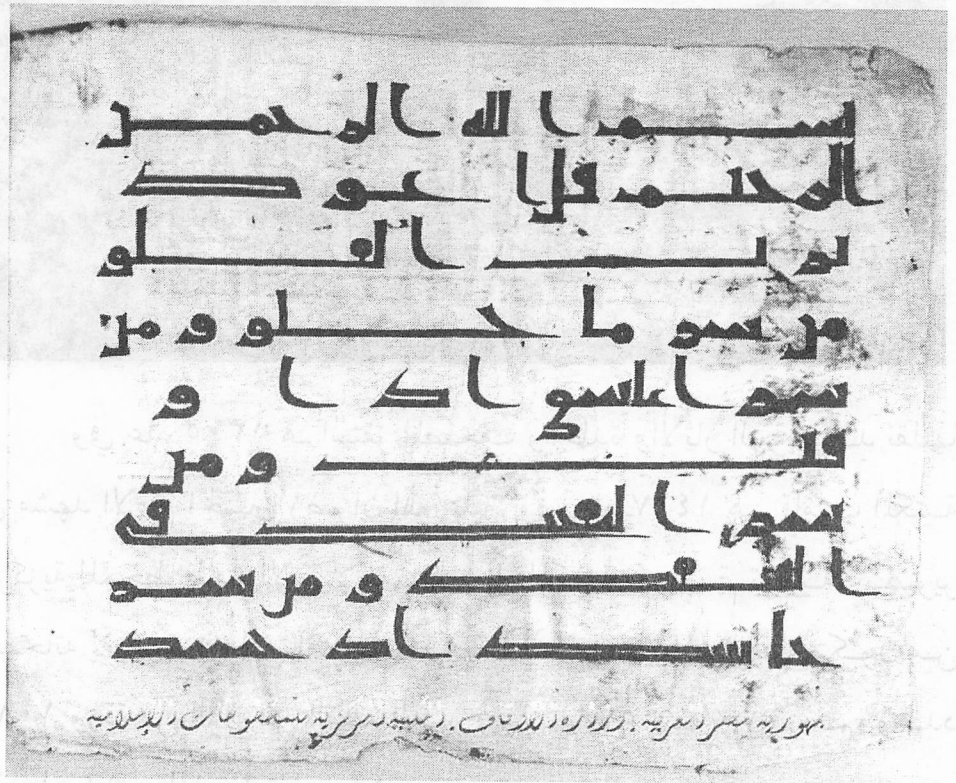 بسم الله الرحمن
الرحيم قل اعوذ
برب الفلق
من شر ما خلق و من
شر غاسق اذا و
قب و من
شر النفثت في
العقد و من شر
حاسد اذا حسد
جمهورية مصر العربية . وزارة الأوقاف . المكتبة المركزية للمخطوطات الإسلامية